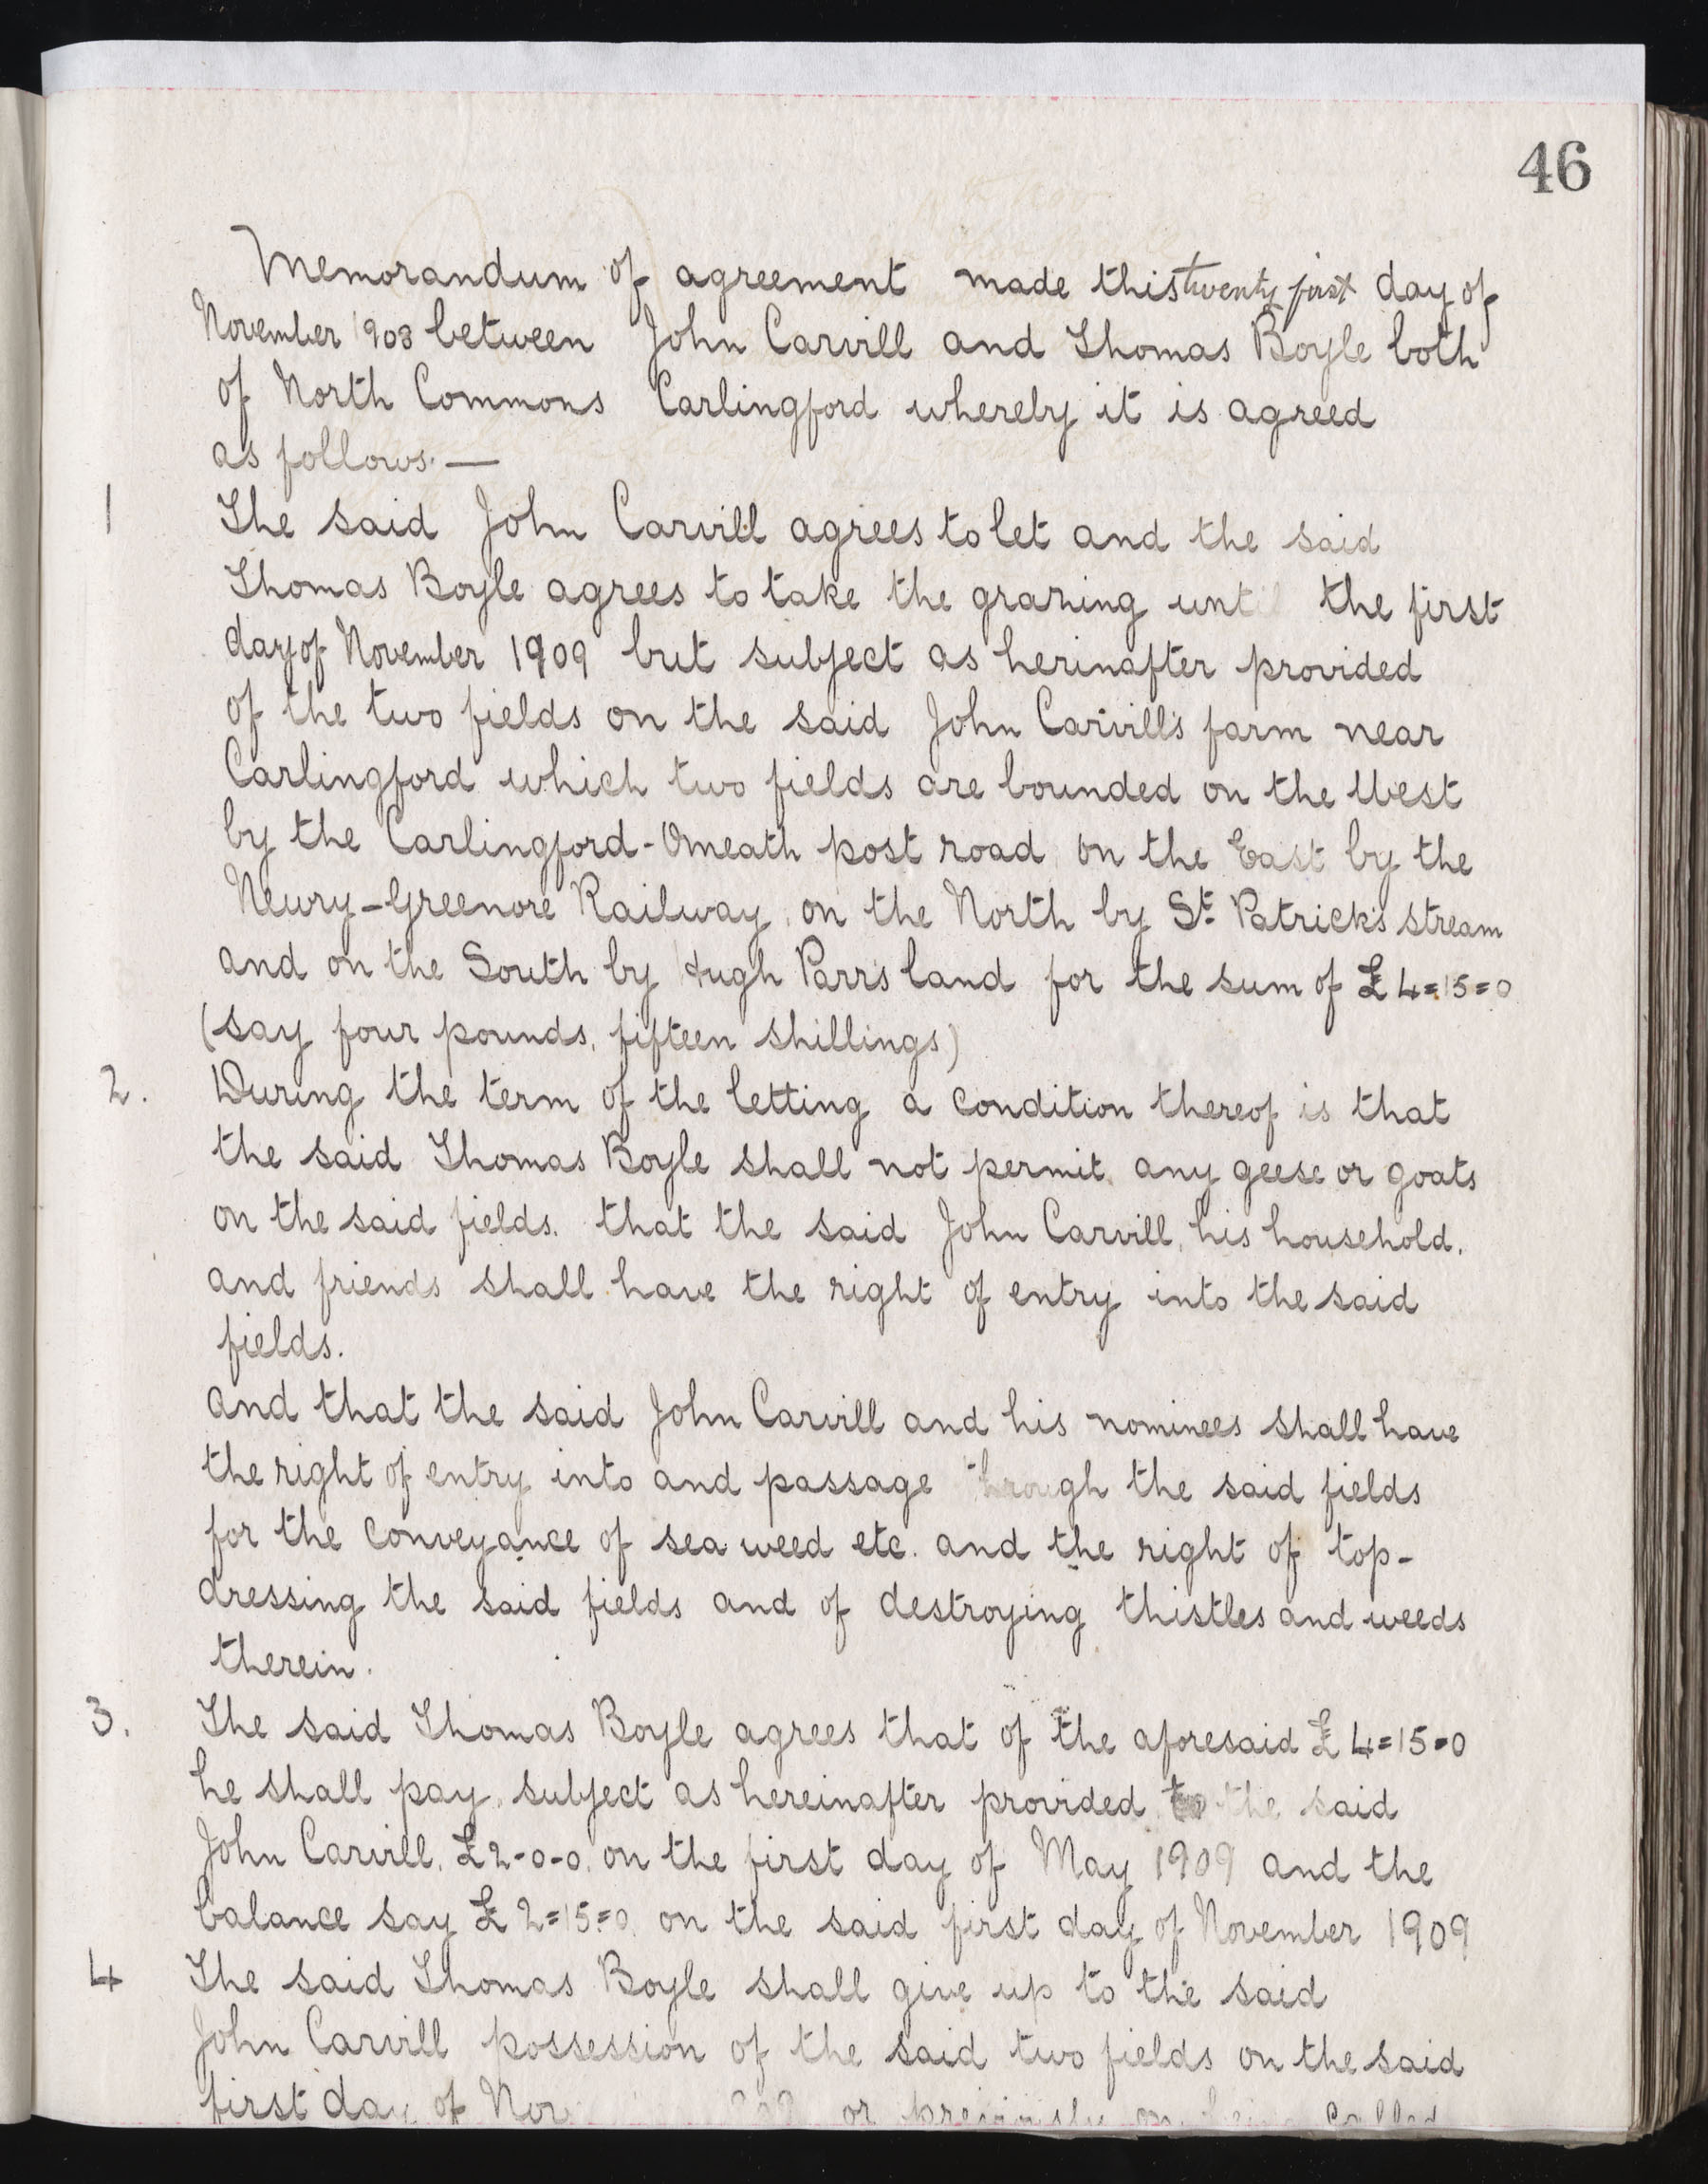 46
Memorandum of agreement made this twenty first day of
November 1908 between John Carvill and Thomas Boyle both
of North Commons Carlingford whereby it is agreed
as follows. —
1 The said John Carvill agrees to let and the said
Thomas Boyle agrees to take the grazing until the first
day of November 1909 but subject as herinafter provided
of the two fields on the said John Carvill's farm near
Carlingford which two fields are bounded on the West
by the Carlingford-Omeath post road, on the East by the
Newry-Greenore Railway, on the North by St. Patrick's stream
and on the South by Hugh Parr's land for the sum of £4=15=0
(say four pounds, fifteen shillings)
2. During the term of the letting a condition thereof is that
the said Thomas Boyle shall not permit any geese or goats
on the said fields. that the said John Carvill, his household,
and friends shall have the right of entry into the said
fields.
and that the said John Carvill and his nominees shall have
the right of entry into and passage through the said fields
for the conveyance of sea weed etc. and the right of top-
dressing the said fields and of destroying thistles and weeds
therein.
3. The said Thomas Boyle agrees that of the aforesaid £4=15=0
he shall pay, subject as hereinafter provided, to the said
John Carvill, £2-0-0, on the first day of May 1909 and the
balance say £2=15=0 on the said first day of November 1909
4 The said Thomas Boyle shall give up to the said
John Carvill possession of the said two fields on the said
first day of Nov or previously on being called